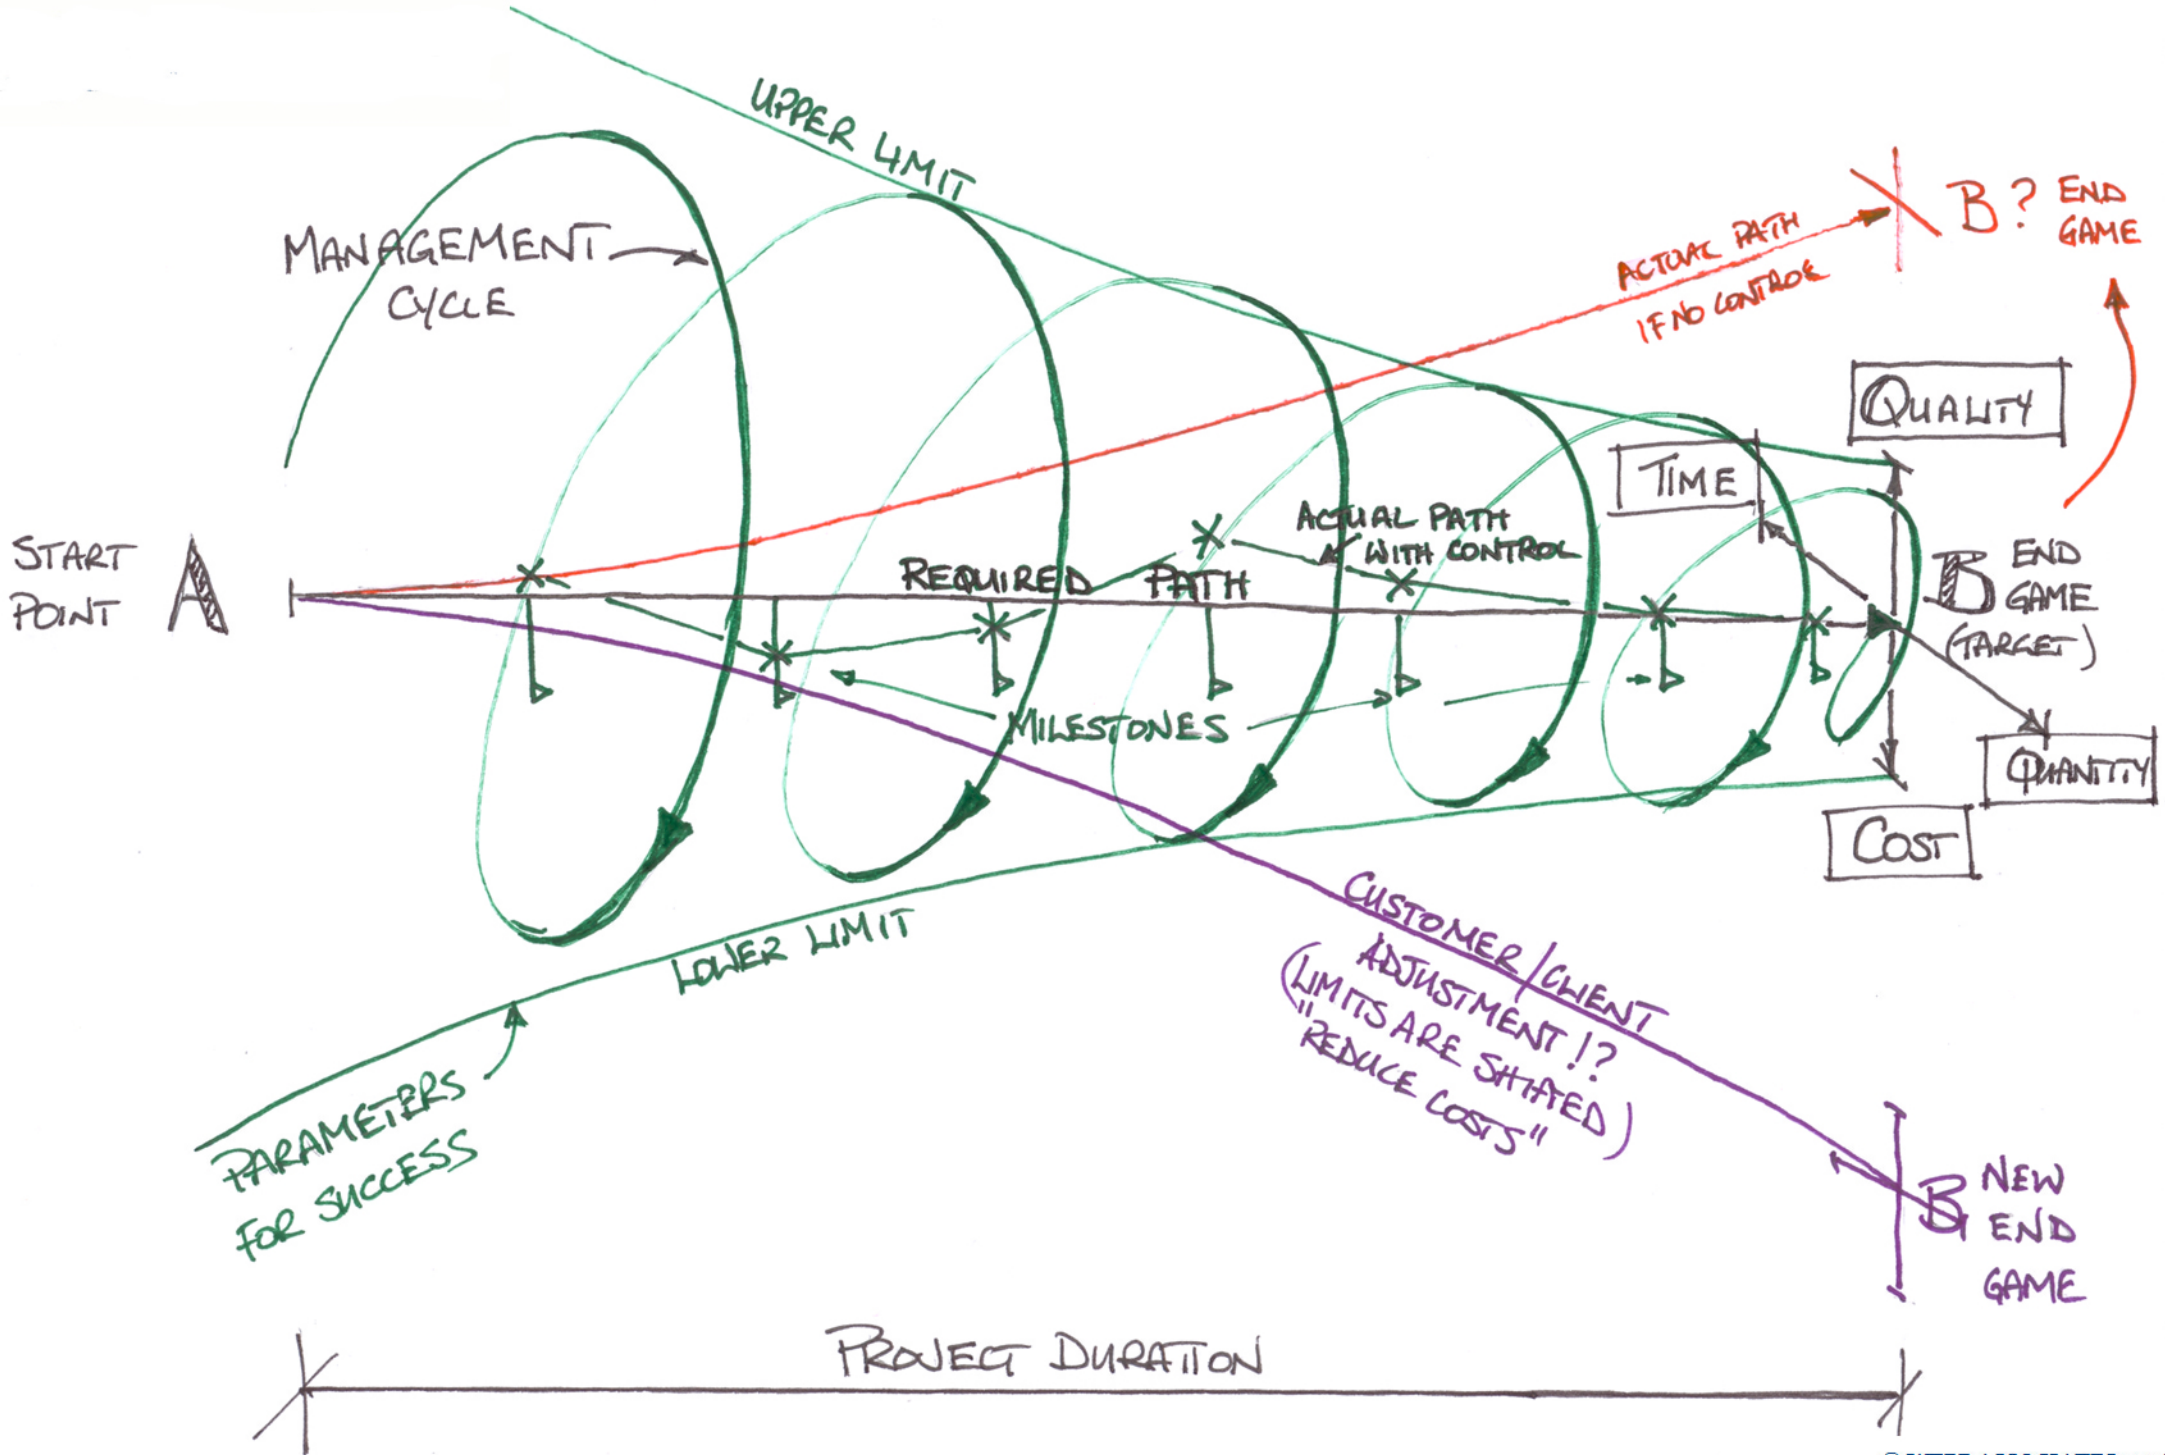 UPPER LIMIT
MANAGEMENT
CYCLE
ACTUAL PATH
IF NO CONTROL
B? END
GAME
QUALITY
TIME
START
POINT
A
REQUIRED PATH
ACTUAL PATH
WITH CONTROL
B END
GAME
(TARGET)
MILESTONES
QUANTITY
COST
LOWER LIMIT
CUSTOMER/CLIENT
ADJUSTMENT!?
(LIMITS ARE SHIFTED)
"REDUCE COSTS"
PARAMETERS
FOR SUCCESS
B NEW
END
GAME
PROJECT DURATION